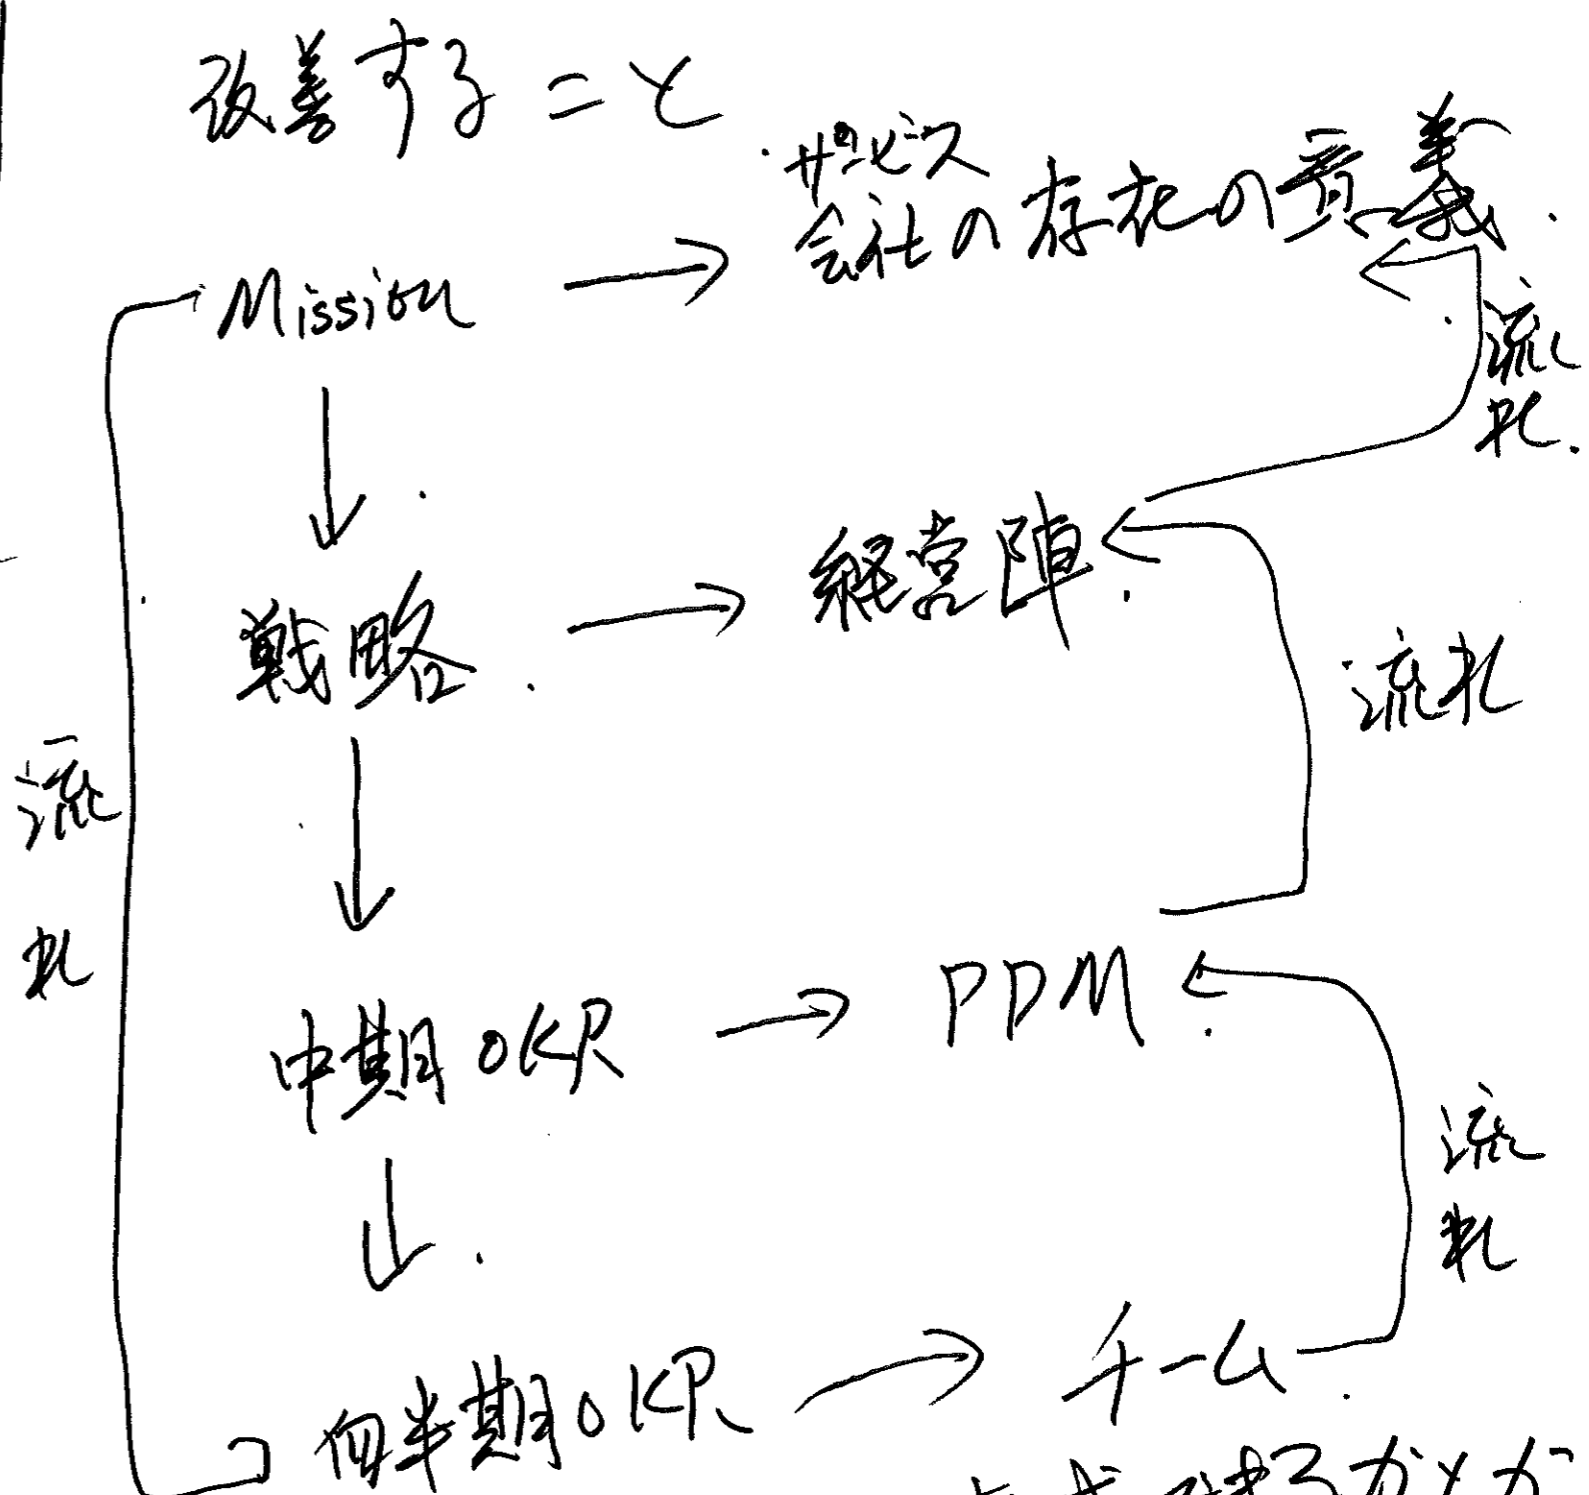 改善すること
サービス
Mission → 会社の存在の意義
流れ
戦略 → 経営陣
流れ
流れ
中期OKR → PDM
流れ
四半期OKR → チーム